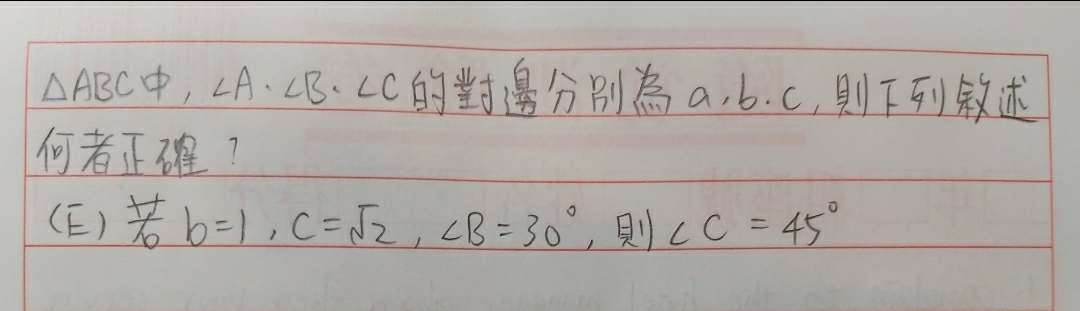 △ABC中,∠A.∠B.∠C的對邊分別為a.b.c,則下列敘述
何者正確?
(E)若b=1,C=√2,∠B=30°,則∠C=45°